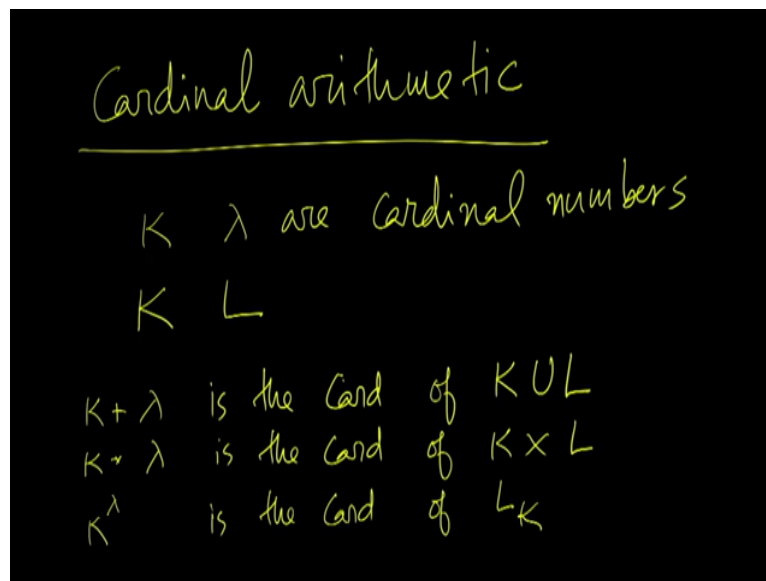 Cardinal arithmetic
κ λ are cardinal numbers
K L
κ + λ is the Card of K ∪ L
κ · λ is the Card of K × L
κ^λ is the Card of ᴸK